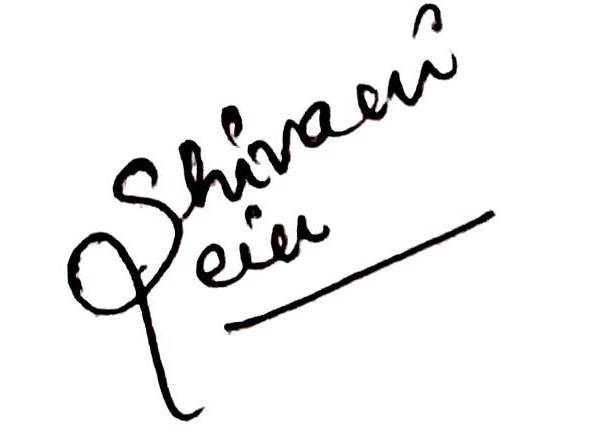 Shivani
Jain